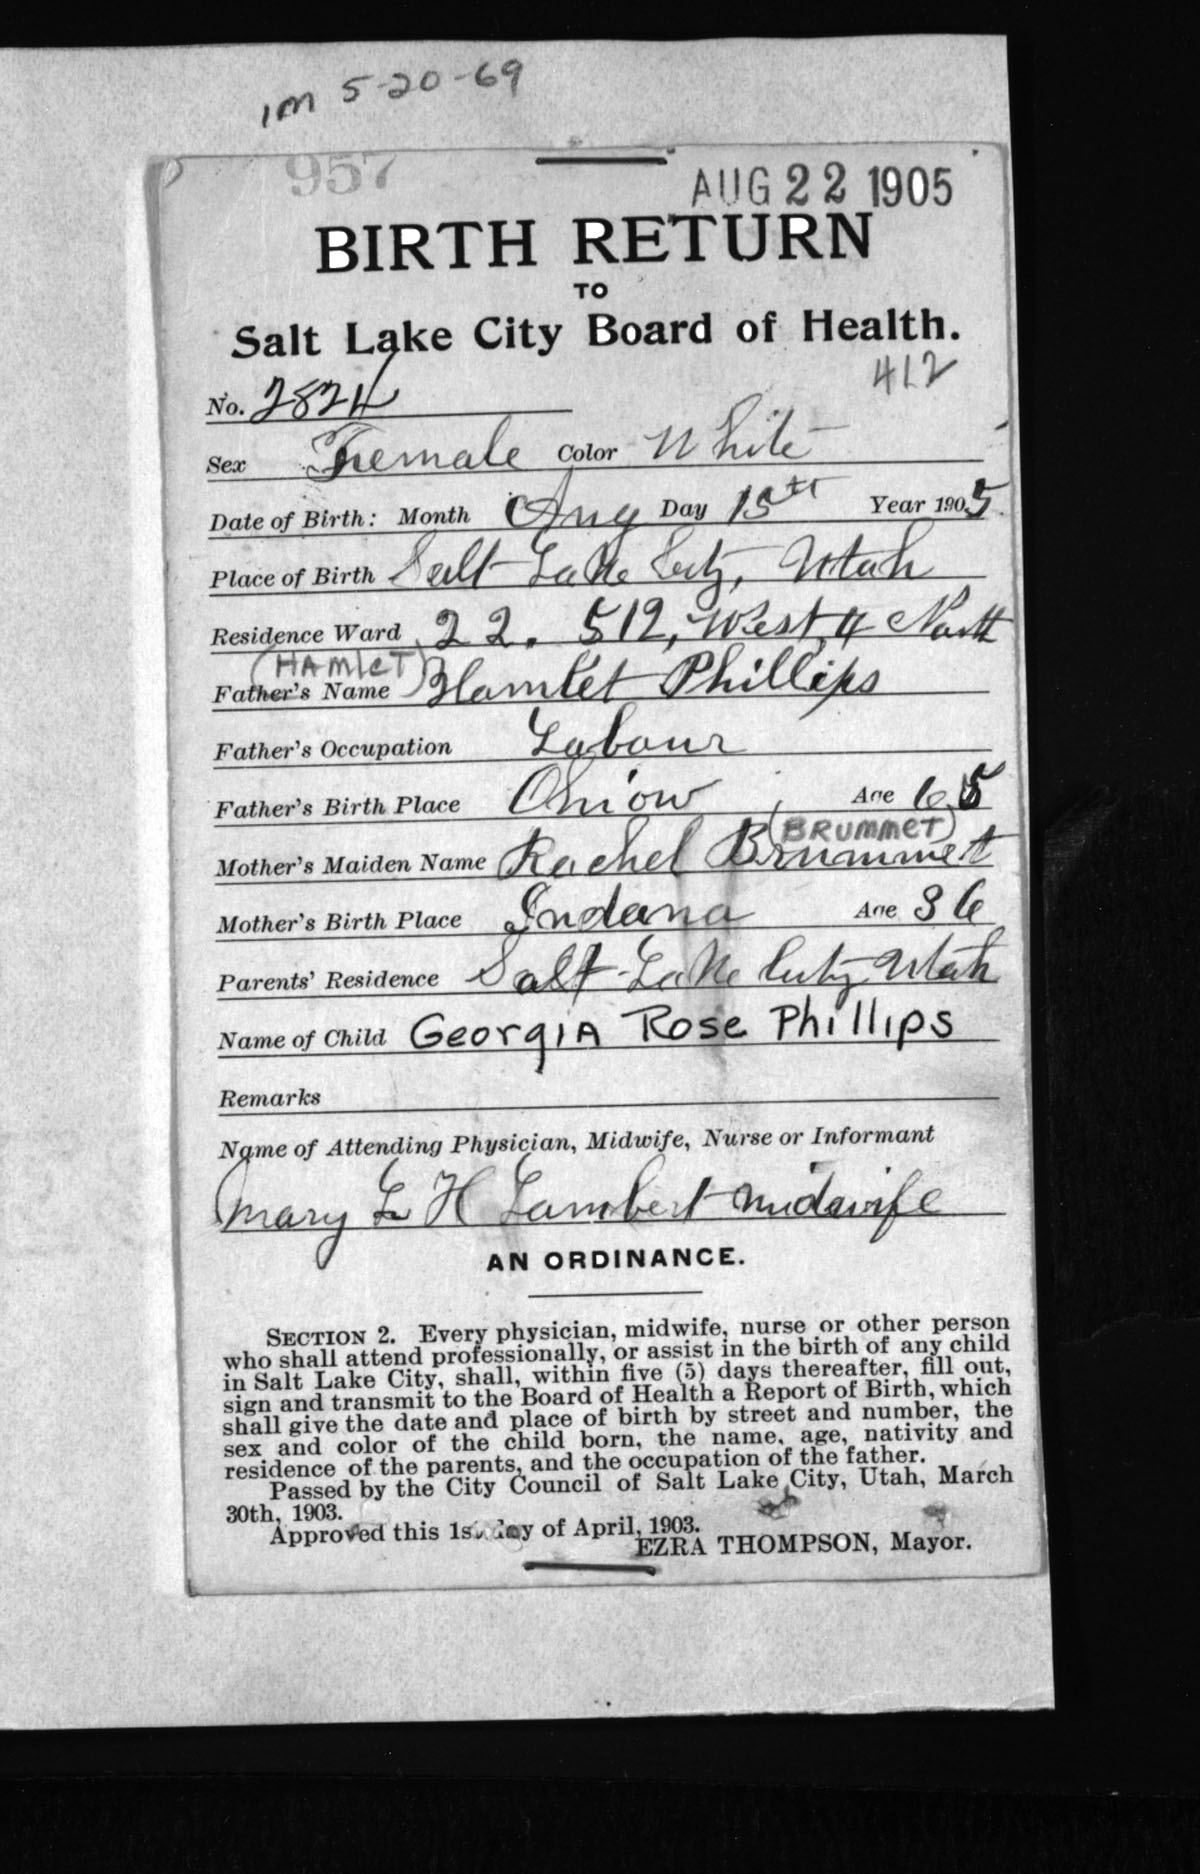 1M 5-20-69
957
AUG 22 1905
BIRTH RETURN
TO
Salt Lake City Board of Health.
412
No. 2824
Sex Female Color White
Date of Birth: Month Aug Day 15th Year 1905
Place of Birth Salt Lake City, Utah
Residence Ward 22. 512, West 4 North
(HAMLET)
Father's Name Hamlet Phillips
Father's Occupation Labour
Father's Birth Place Ohiow Age 65
(BRUMMET)
Mother's Maiden Name Rachel Brummet
Mother's Birth Place Indana Age 36
Parents' Residence Salt Lake City Utah
Name of Child GeorgIA Rose Phillips
Remarks
Name of Attending Physician, Midwife, Nurse or Informant
Mary L H Lambert midwife
AN ORDINANCE.
SECTION 2. Every physician, midwife, nurse or other person
who shall attend professionally, or assist in the birth of any child
in Salt Lake City, shall, within five (5) days thereafter, fill out,
sign and transmit to the Board of Health a Report of Birth, which
shall give the date and place of birth by street and number, the
sex and color of the child born, the name, age, nativity and
residence of the parents, and the occupation of the father.
Passed by the City Council of Salt Lake City, Utah, March
30th, 1903.
Approved this 1st day of April, 1903.
EZRA THOMPSON, Mayor.